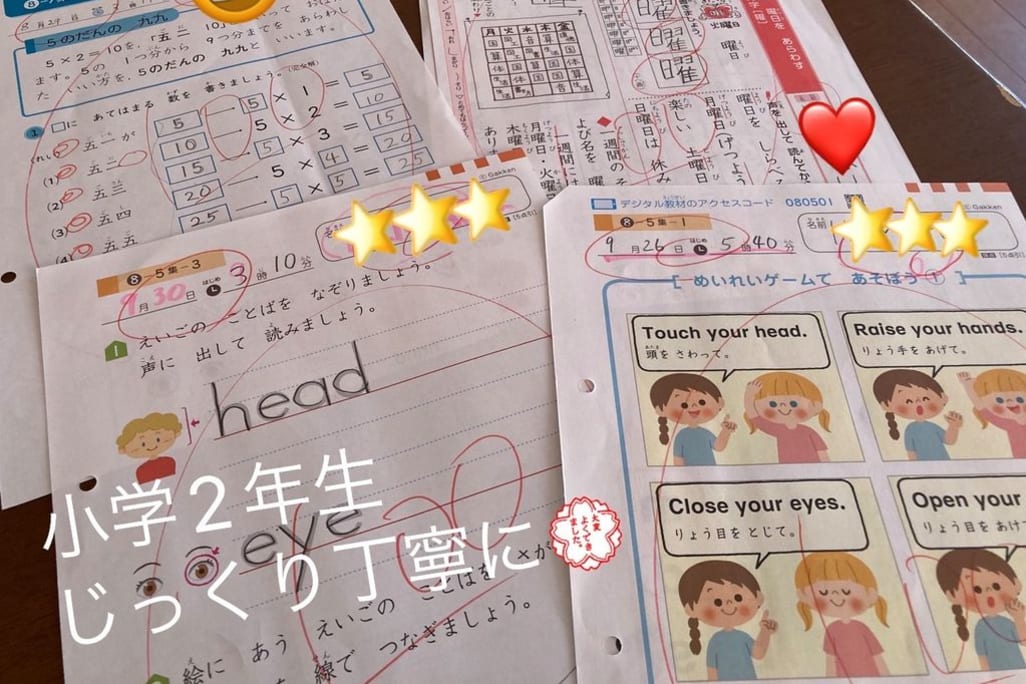 5のだんの 九九
5×2=10を、「五二
ます。5の 1つ分から 9つ分までを あらわし
た いい分を、5のだんの 九九と いいます。
□に あてはまる 数を 書きましょう。
五一が 5 5×1=5
(1) 10 5×2=10
(2) 五三 15 5×3=15
(3) 五四 20 5×4=20
(4) 五五 25 5×5=25
曜日を あらわす
曜
曜
月 火 水 木 金
曜日
火曜日
声を出して 読んでか
曜日を しらべ
月曜日 げつよう
楽しい 土曜日
日曜日は 休み
一週間に
よび名を
月曜日・火曜
木曜
あり
©Gakken
8-5集-3
9月30日 はじめ 3時10分
1 えいごの ことばを なぞりましょう。
声に 出して 読みましょう。
head
eye
えいごの ことばを
絵に あう
線で つなぎましょう。
デジタル教材のアクセスコード 080501
©Gakken
8-5集-1
名前
9月26日 はじめ 5時40分
[ めいれいゲームで あそぼう① ]
Touch your head.
頭を さわって。
Raise your hands.
りょう手を あげて。
Close your eyes.
りょう目を とじて。
Open your
りょう目を あけ
小学2年生
じっくり丁寧に
大変
よくでき
ました